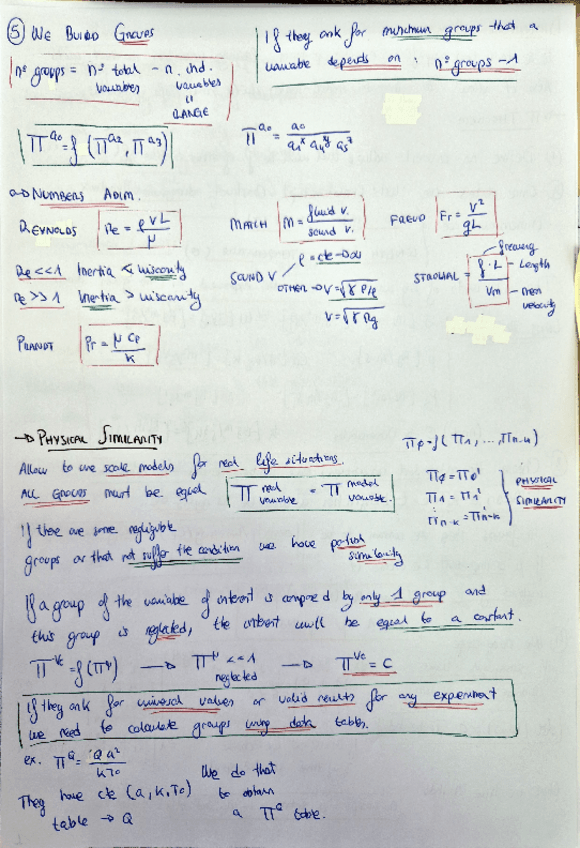 ⑤ We Build Groups
nº groups = nº total variables - n. ind. variables
"
RANGE
If they ask for minimum groups that a
variable depends on : nº groups - 1
Π^a₀ = f (Π^a₂, Π^a₃)
Π^a₀ = a₀ / a₁ˣ a₄ʸ a₅ᶻ
→ Numbers Adim.
Reynolds Re = ρ V L / μ
Mach M = fluid v. / sound v.
Froud Fr = V² / gL
Re << 1 Inertia < viscosity
Re >> 1 Inertia > viscosity
Sound V
ρ = cte → ∞
other → V = √γ P/ρ
V = √γ Rg
Strouhal = f · L / Vm
Length
mean velocity
Prandt Pr = μ Cp / k
→ Physical Similarity
Allow to use scale models for real life situations.
All Groups must be equal
Π real variable = Π model variable
Πφ = f(Π1, ..., Πn-k)
Πφ = Πφ'
Π1 = Π1'
⋮
Πn-k = Πn-k'
Physical Similarity
If there are some negligible
groups or that not suffer the condition we have partial similarity
If a group of the variable of interest is composed by only 1 group and
this group is neglected, the interest will be equal to a constant.
Π^Vc = f(Π^μ) → Π^μ << 1 neglected → Π^Vc = C
If they ask for universal values or valid results for any experiment
we need to calculate groups using data tables.
ex. Π^Q = Q a² / k T₀
They have cte (a, k, T₀)
table → Q
We do that
to obtain
a Π^Q table.